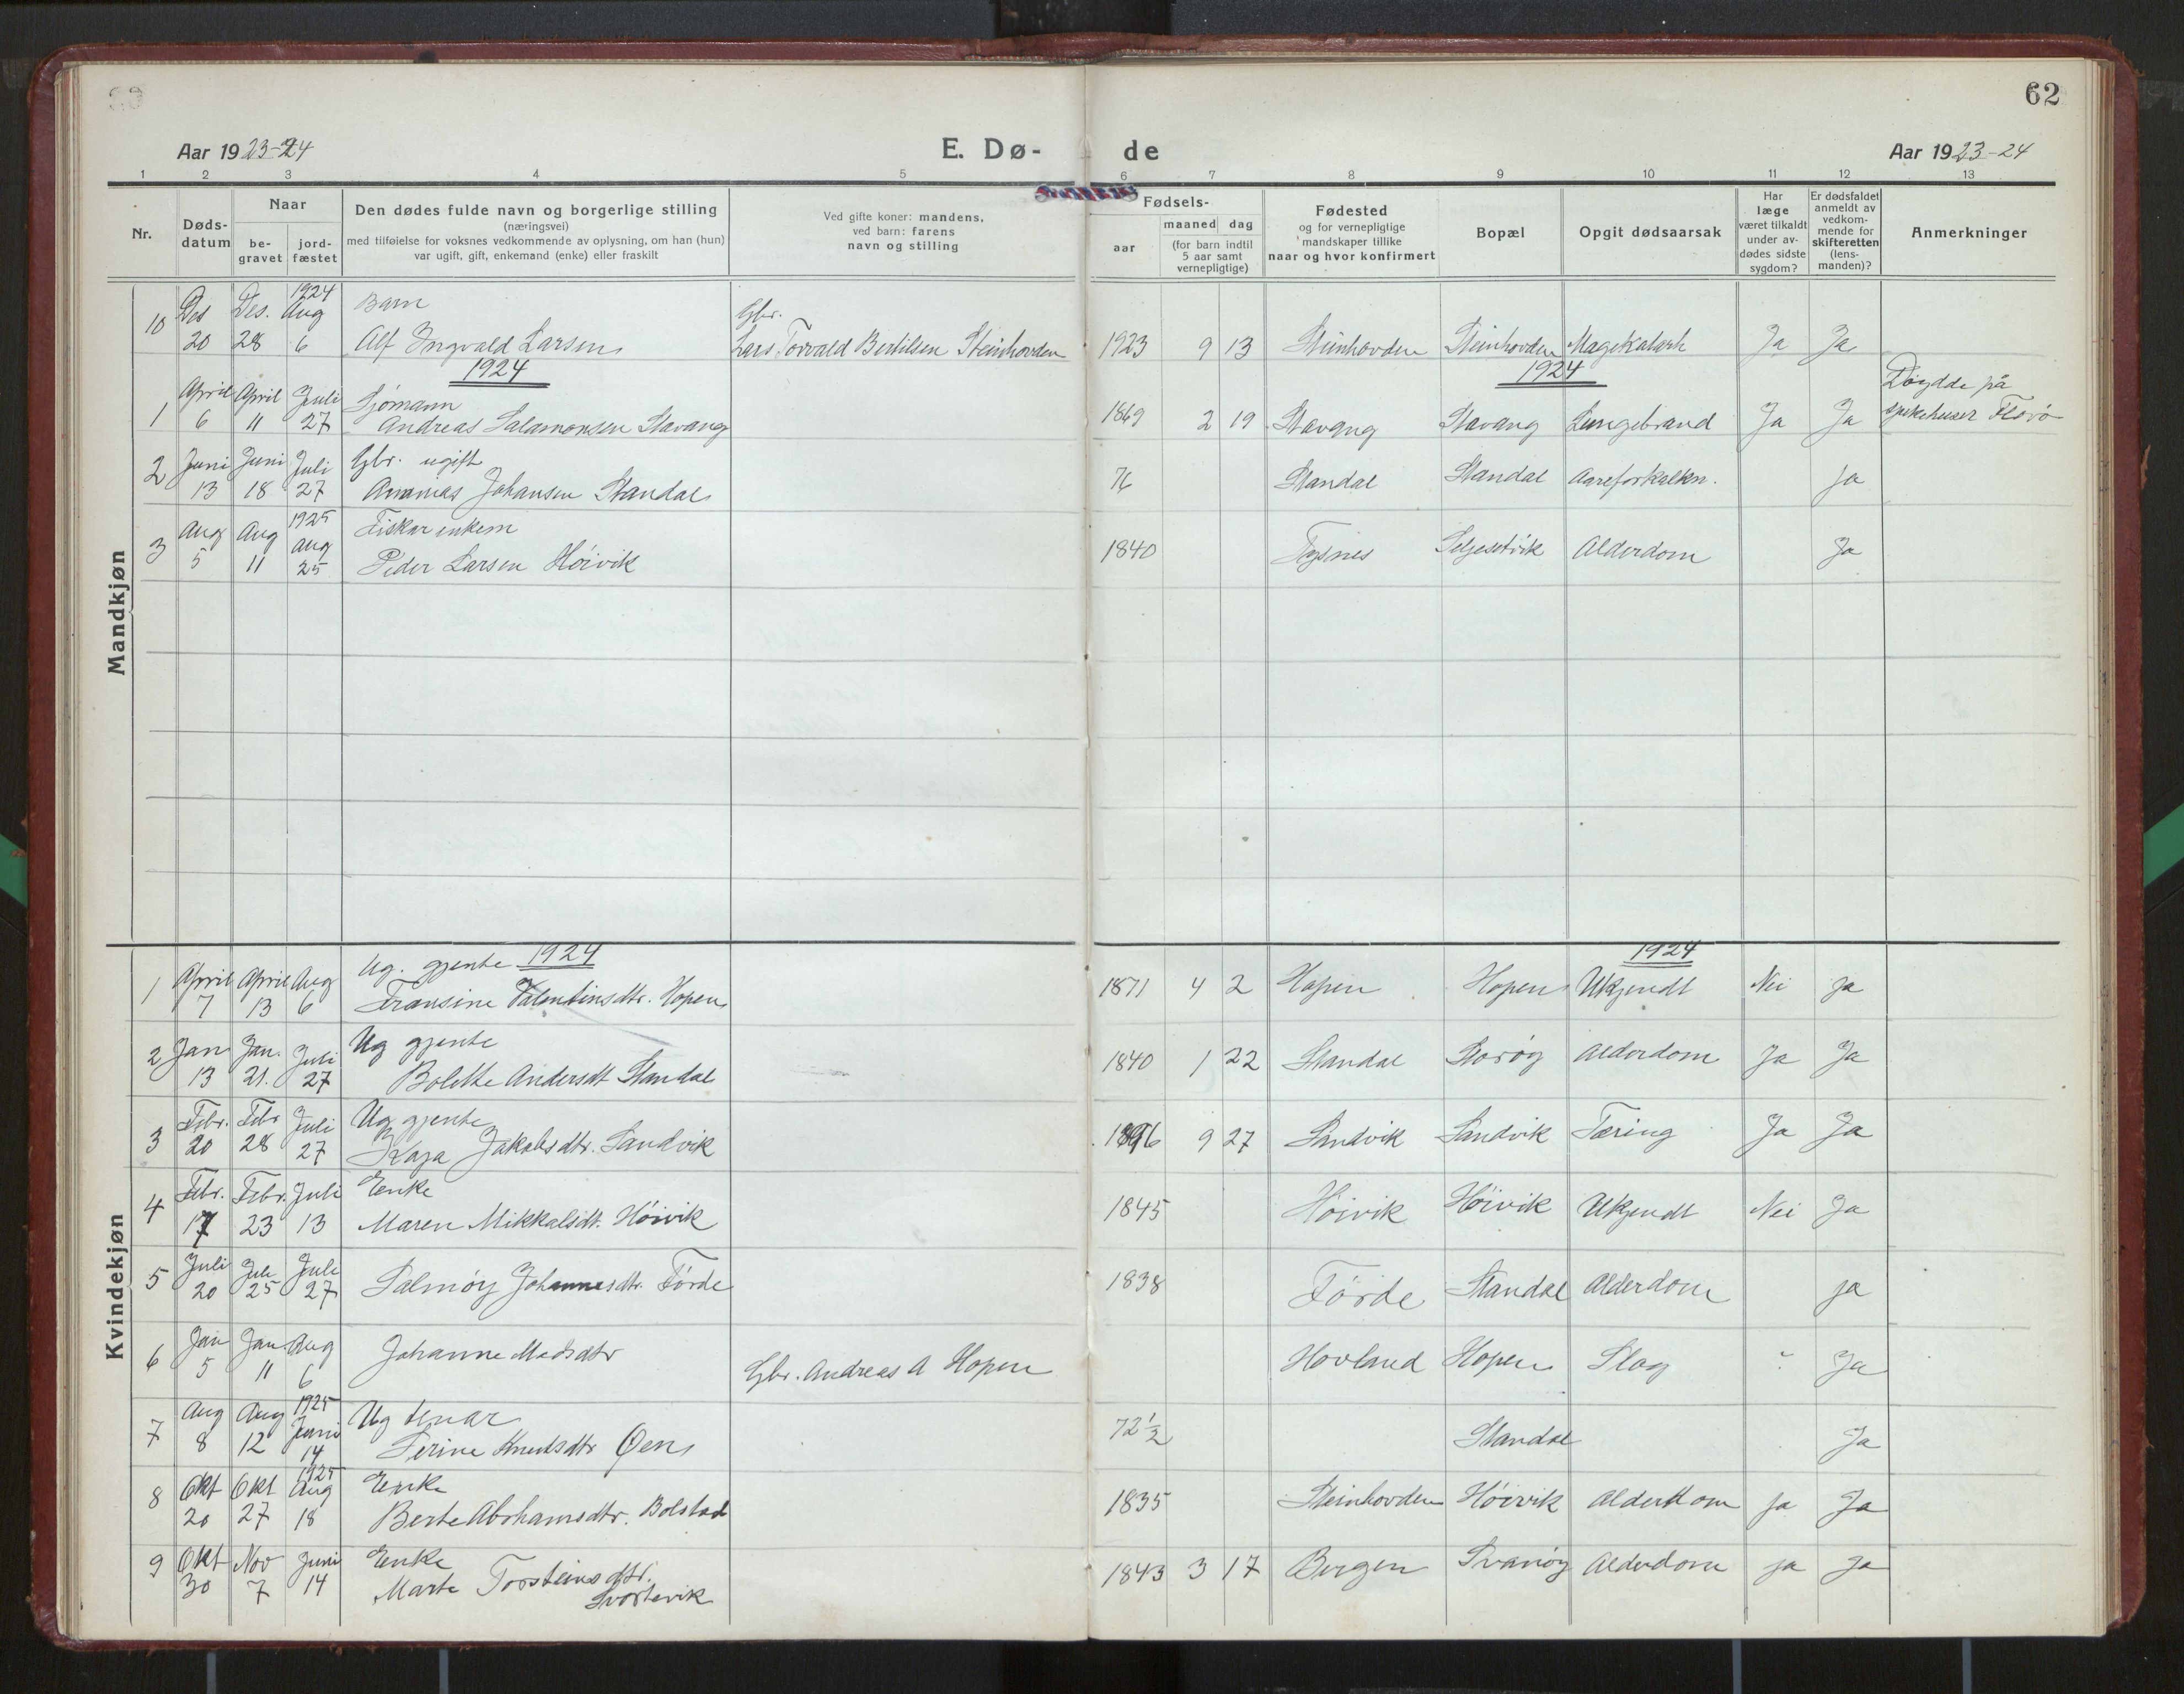 62
Aar 1923-24
E. Dø-
de
Aar 1923-24
1 2 3 4 5 6 7 8 9 10 11 12 13
Nr.
Døds-
datum
Naar
be-
gravet
jord-
fæstet
Den dødes fulde navn og borgerlige stilling
(næringsvei)
med tilføielse for voksnes vedkommende av oplysning, om han (hun)
var ugift, gift, enkemand (enke) eller fraskilt
Ved gifte koner: mandens,
ved barn: farens
navn og stilling
Fødsels-
aar
maaned dag
(for barn indtil
5 aar samt
vernepligtige)
Fødested
og for vernepligtige
mandskaper tillike
naar og hvor konfirmert
Bopæl
Opgit dødsaarsak
Har
læge
været tilkaldt
under av-
dødes sidste
sygdom?
Er dødsfaldet
anmeldt av
vedkom-
mende for
skifteretten
(lens-
manden)?
Anmerkninger
Mandkjøn
1924
Des Des. Aug Barn Gbr.
10 20 28 6 Alf Ingvald Larsen Lars Torvald Bertilsen Steinhovden 1923 9 13 Steinhovden Steinhovden Magekatarh Ja Ja
1924 1924
April April Juli Sjømann Døydde på
1 6 11 27 Andreas Salamonsen Stavang 1869 2 19 Stavang Stavang Lungebrand Ja Ja sjukehuset Florø
Juni Juni Juli Gbr. ugift
2 13 18 27 Ananias Johansen Standal 76 Standal Standal Aareforkalkn. ja
1925
Aug Aug Aug Fiskar enkem
3 5 11 25 Peder Larsen Høivik 1840 Tysnes Seljesetvik Alderdom Ja
Kvindekjøn
1924 1924
April April Aug Ug. gjente
1 7 13 6 Fransine Valentinsdtr. Hopen 1871 4 2 Hopen Hopen Ukjendt Nei ja
Jan Jan. Juli Ug gjente
2 13 21. 27 Bolette Andersdt Standal 1840 1 22 Standal Storøy Alderdom Ja Ja
Febr. Febr Juli Ug gjente
3 20 28 27 Kaja Jakobsdtr. Sandvik 1896 9 27 Sandvik Sandvik Tæring Ja Ja
Febr. Febr. Juli Enke
4 17 23 13 Maren Mikkalsdt. Høivik 1845 Høivik Høivik Ukjendt Nei Ja
Juli Juli Juli
5 20 25 27 Salmøy Johannesdtr. Førde 1838 Førde Standal Alderdom ja
Jan Jan Aug
6 5 11 6 Johanne Madsdtr Gbr. Andreas A Hopen Hovland Hopen Slag ? Ja
1925
Aug Aug Juni Ug tenar
7 8 12 14 Serine Knutsdtr Øen 72½ Standal Ja
1925
Okt Okt Aug Enke
8 20 27 18 Berte Abrahamsdtr. Bolstad 1835 Steinhovden Høivik Alderdom ja Ja
Okt Nov Juni Enke
9 30 7 14 Marte Torsteinsdtr. 1843 3 17 Bergen Svanøy Alderdom ja Ja
Svortevik